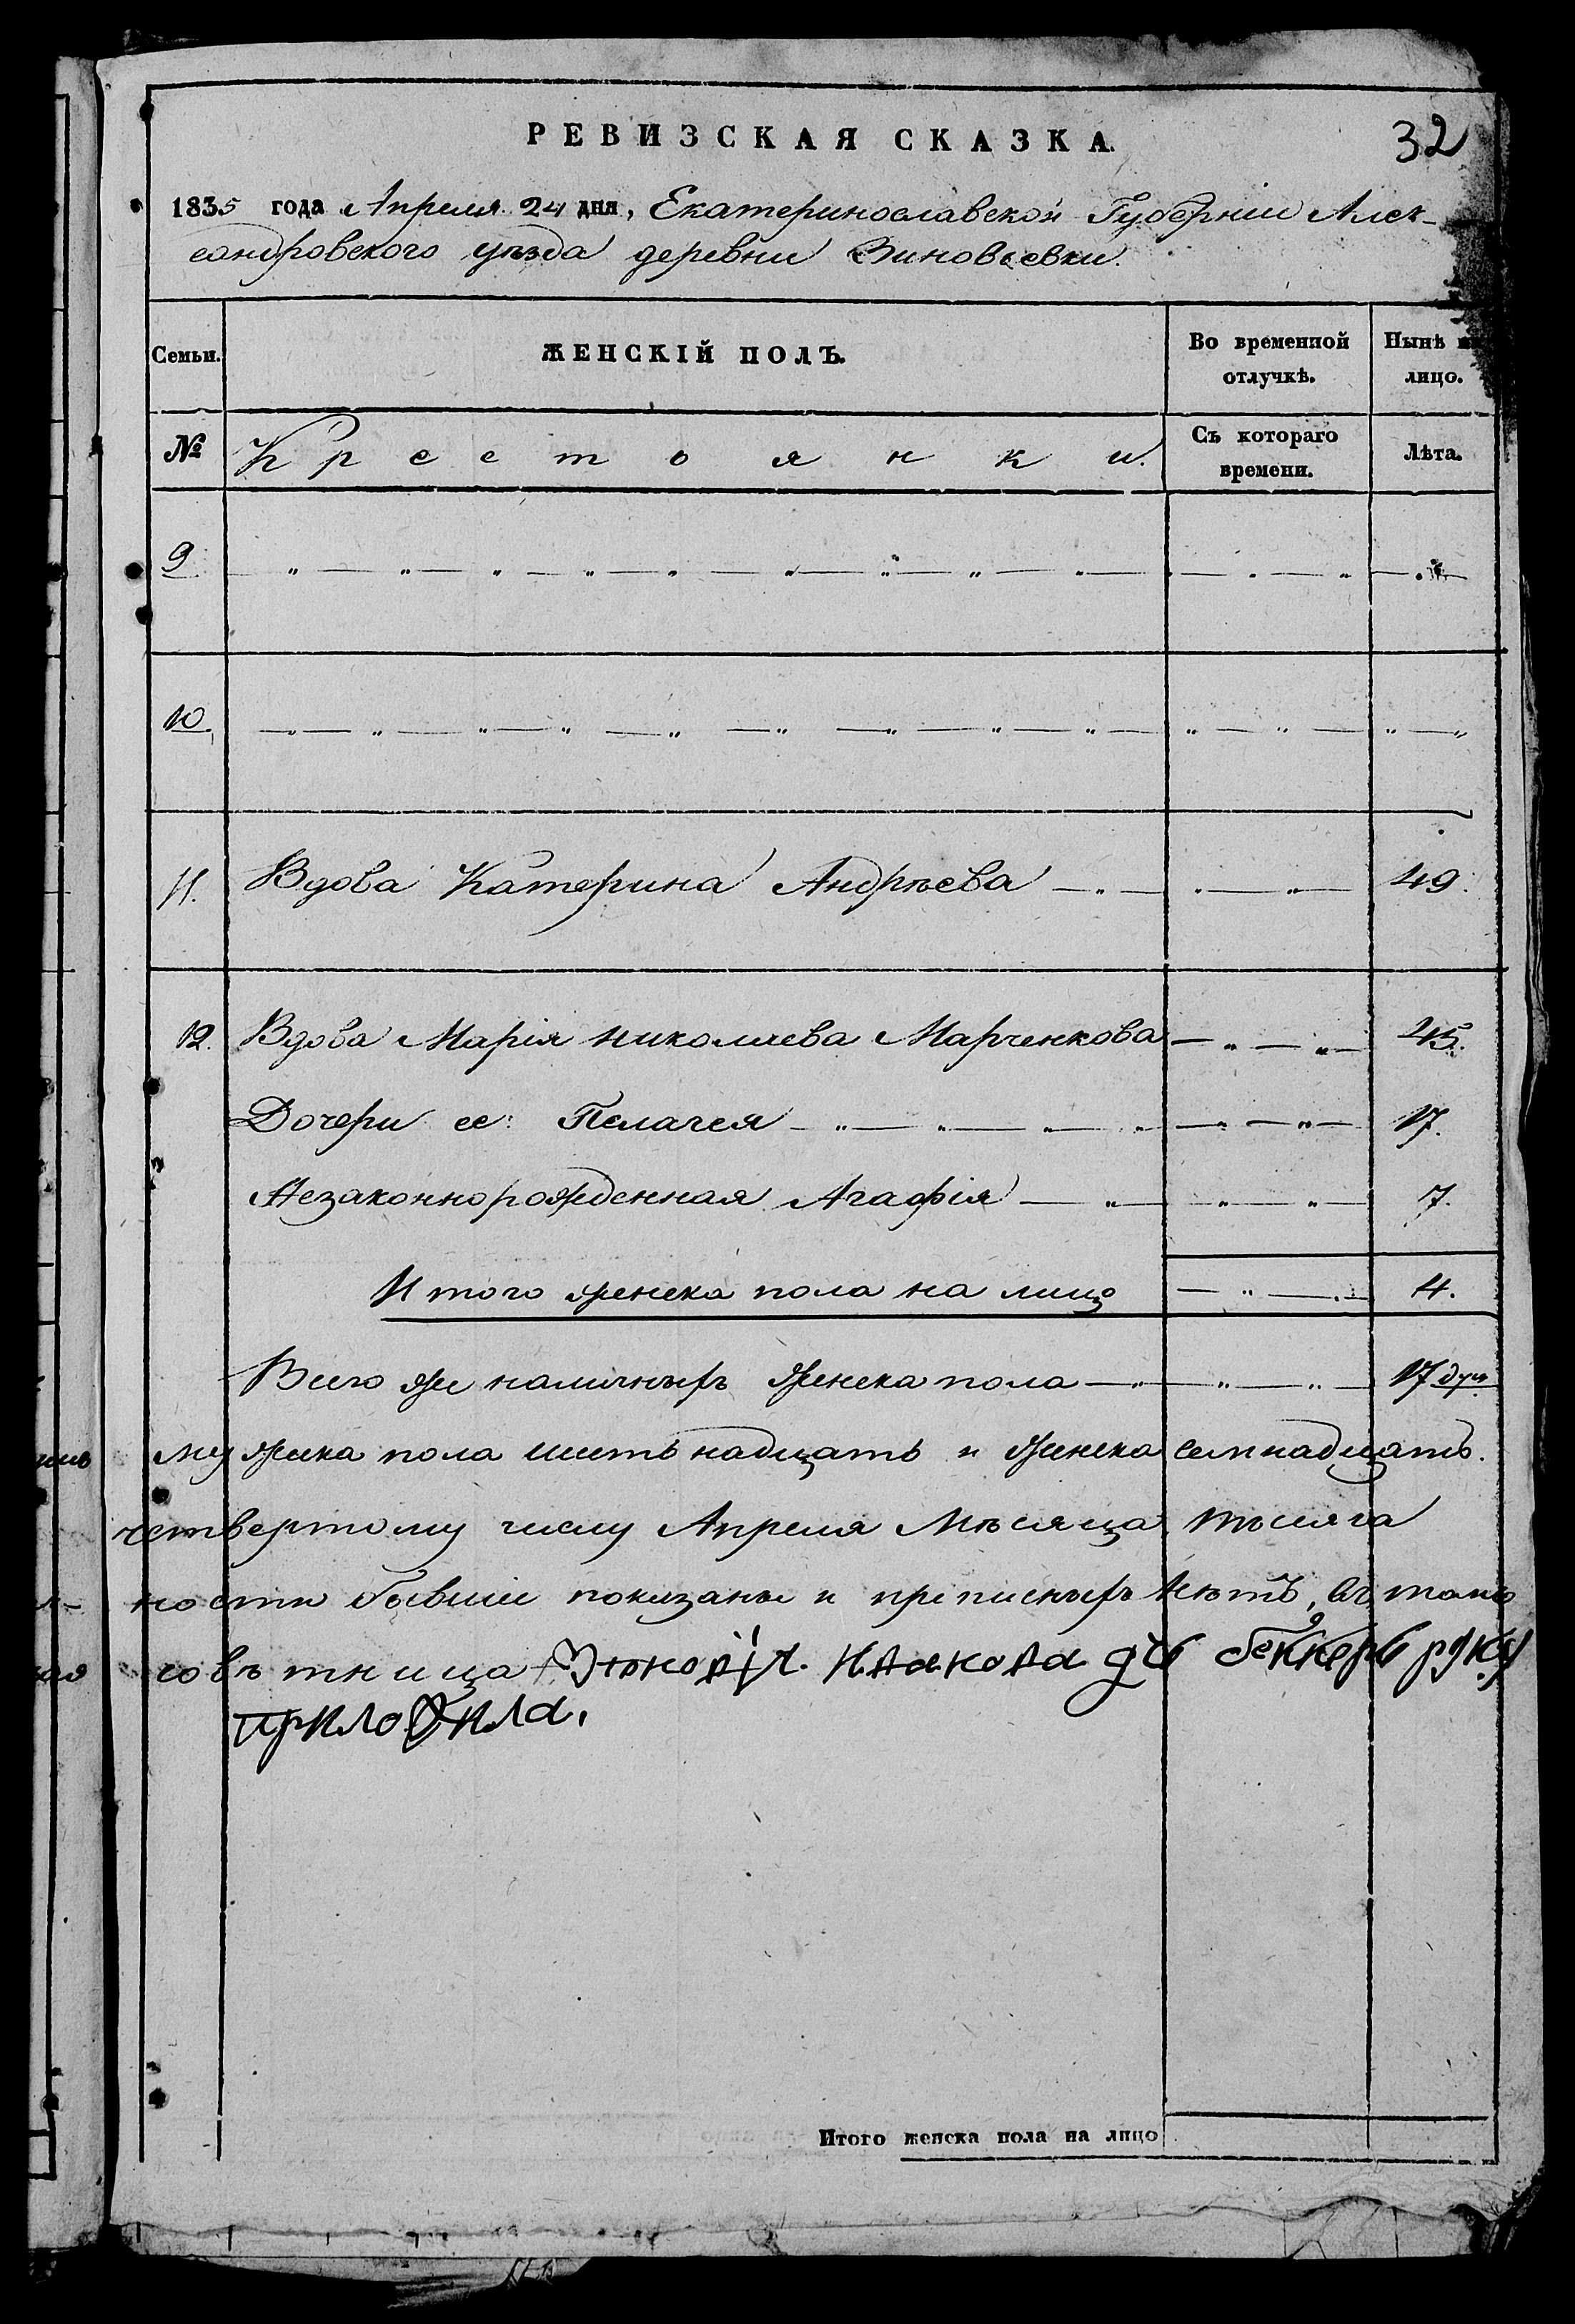 РЕВИЗСКАЯ СКАЗКА.
32
1835 года Апреля 24 дня, Екатеринославской Губерніи Алек-
сандровскаго уѣзда деревни Зиновьевки.
Семьи. ЖЕНСКІЙ ПОЛЪ. Во временной отлучкѣ. Нынѣ на лицо.
№ Крестьянки. Съ котораго времени. Лѣта.
9
10
11. Вдова Катерина Андрѣева 49.
12. Вдова Марія Николаева Марченкова 45.
Дочери ее: Пелагея 17.
Незаконнорожденная Агафія 7.
Итого женска пола на лицо 4.
Всего же наличныхъ женска пола 17 душ
мужеска пола шестьнадцать и женска семнадцать.
четвертому числу Апреля Мѣсяца тысяча
ности бывшіе показаны и приписныхъ нѣтъ, въ томъ
совѣтница Иванова дч беккеръ руку
приложила.
Итого женска пола на лицо